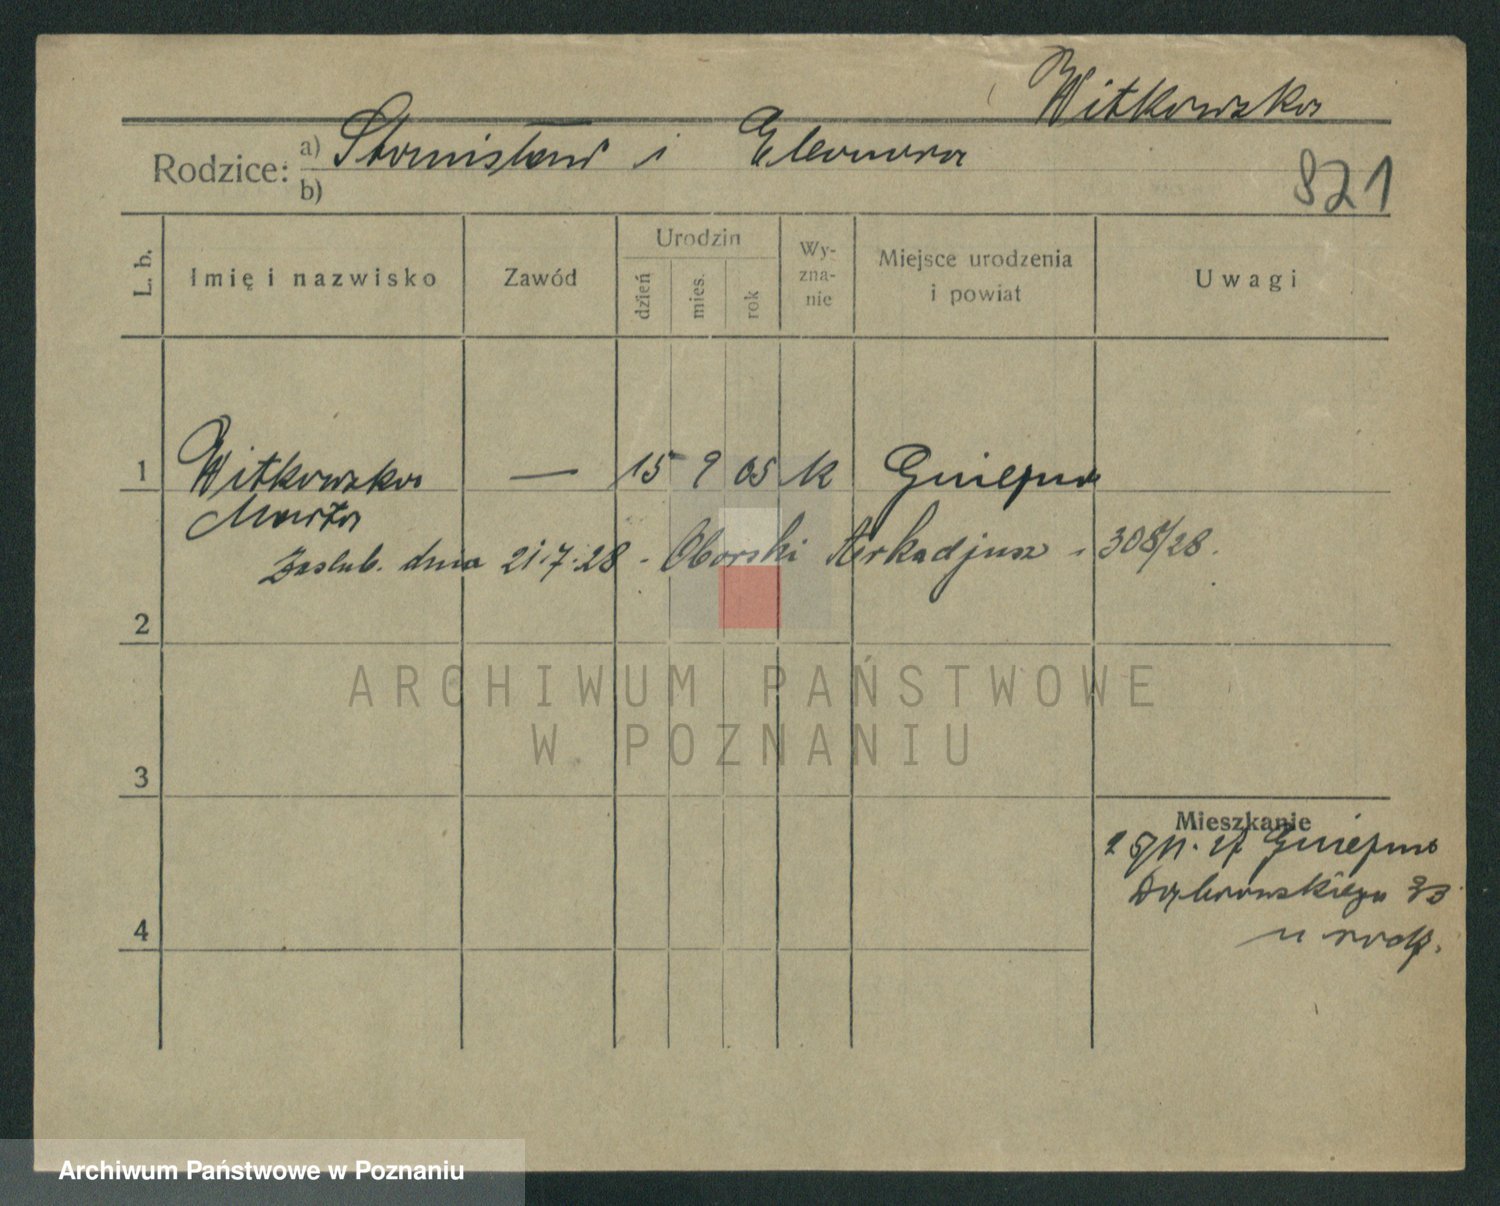 Witkowska
Rodzice: a) Stanisław i Eleonora
b)
821
L. b. Imię i nazwisko Zawód Urodzin dzień mies. rok Wyznanie Miejsce urodzenia i powiat Uwagi
1 Witkowska — 15 9 05 k Gniezno
Marta
Zaślub. dnia 21.7.28 - Oborski Arkadjusz - 308/28.
2
ARCHIWUM PAŃSTWOWE
W POZNANIU
3
Mieszkanie
Gniezno
Dąbrowskiego 33
4
u rodz.
Archiwum Państwowe w Poznaniu